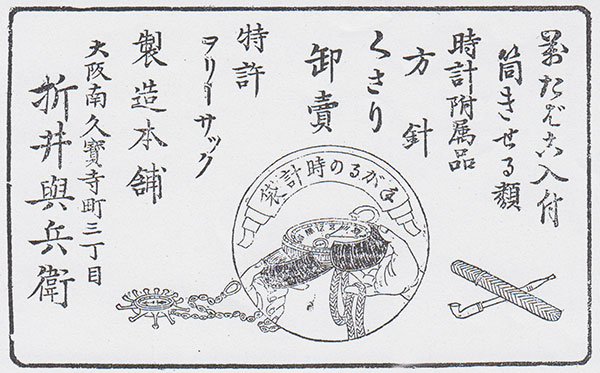 萬たばこ入付
筒きせる類
時計附属品
方針
くさり
卸賣
特許
フリーサック
製造本舗
大阪南久寳寺町三丁目
折井與兵衛
の時計袋